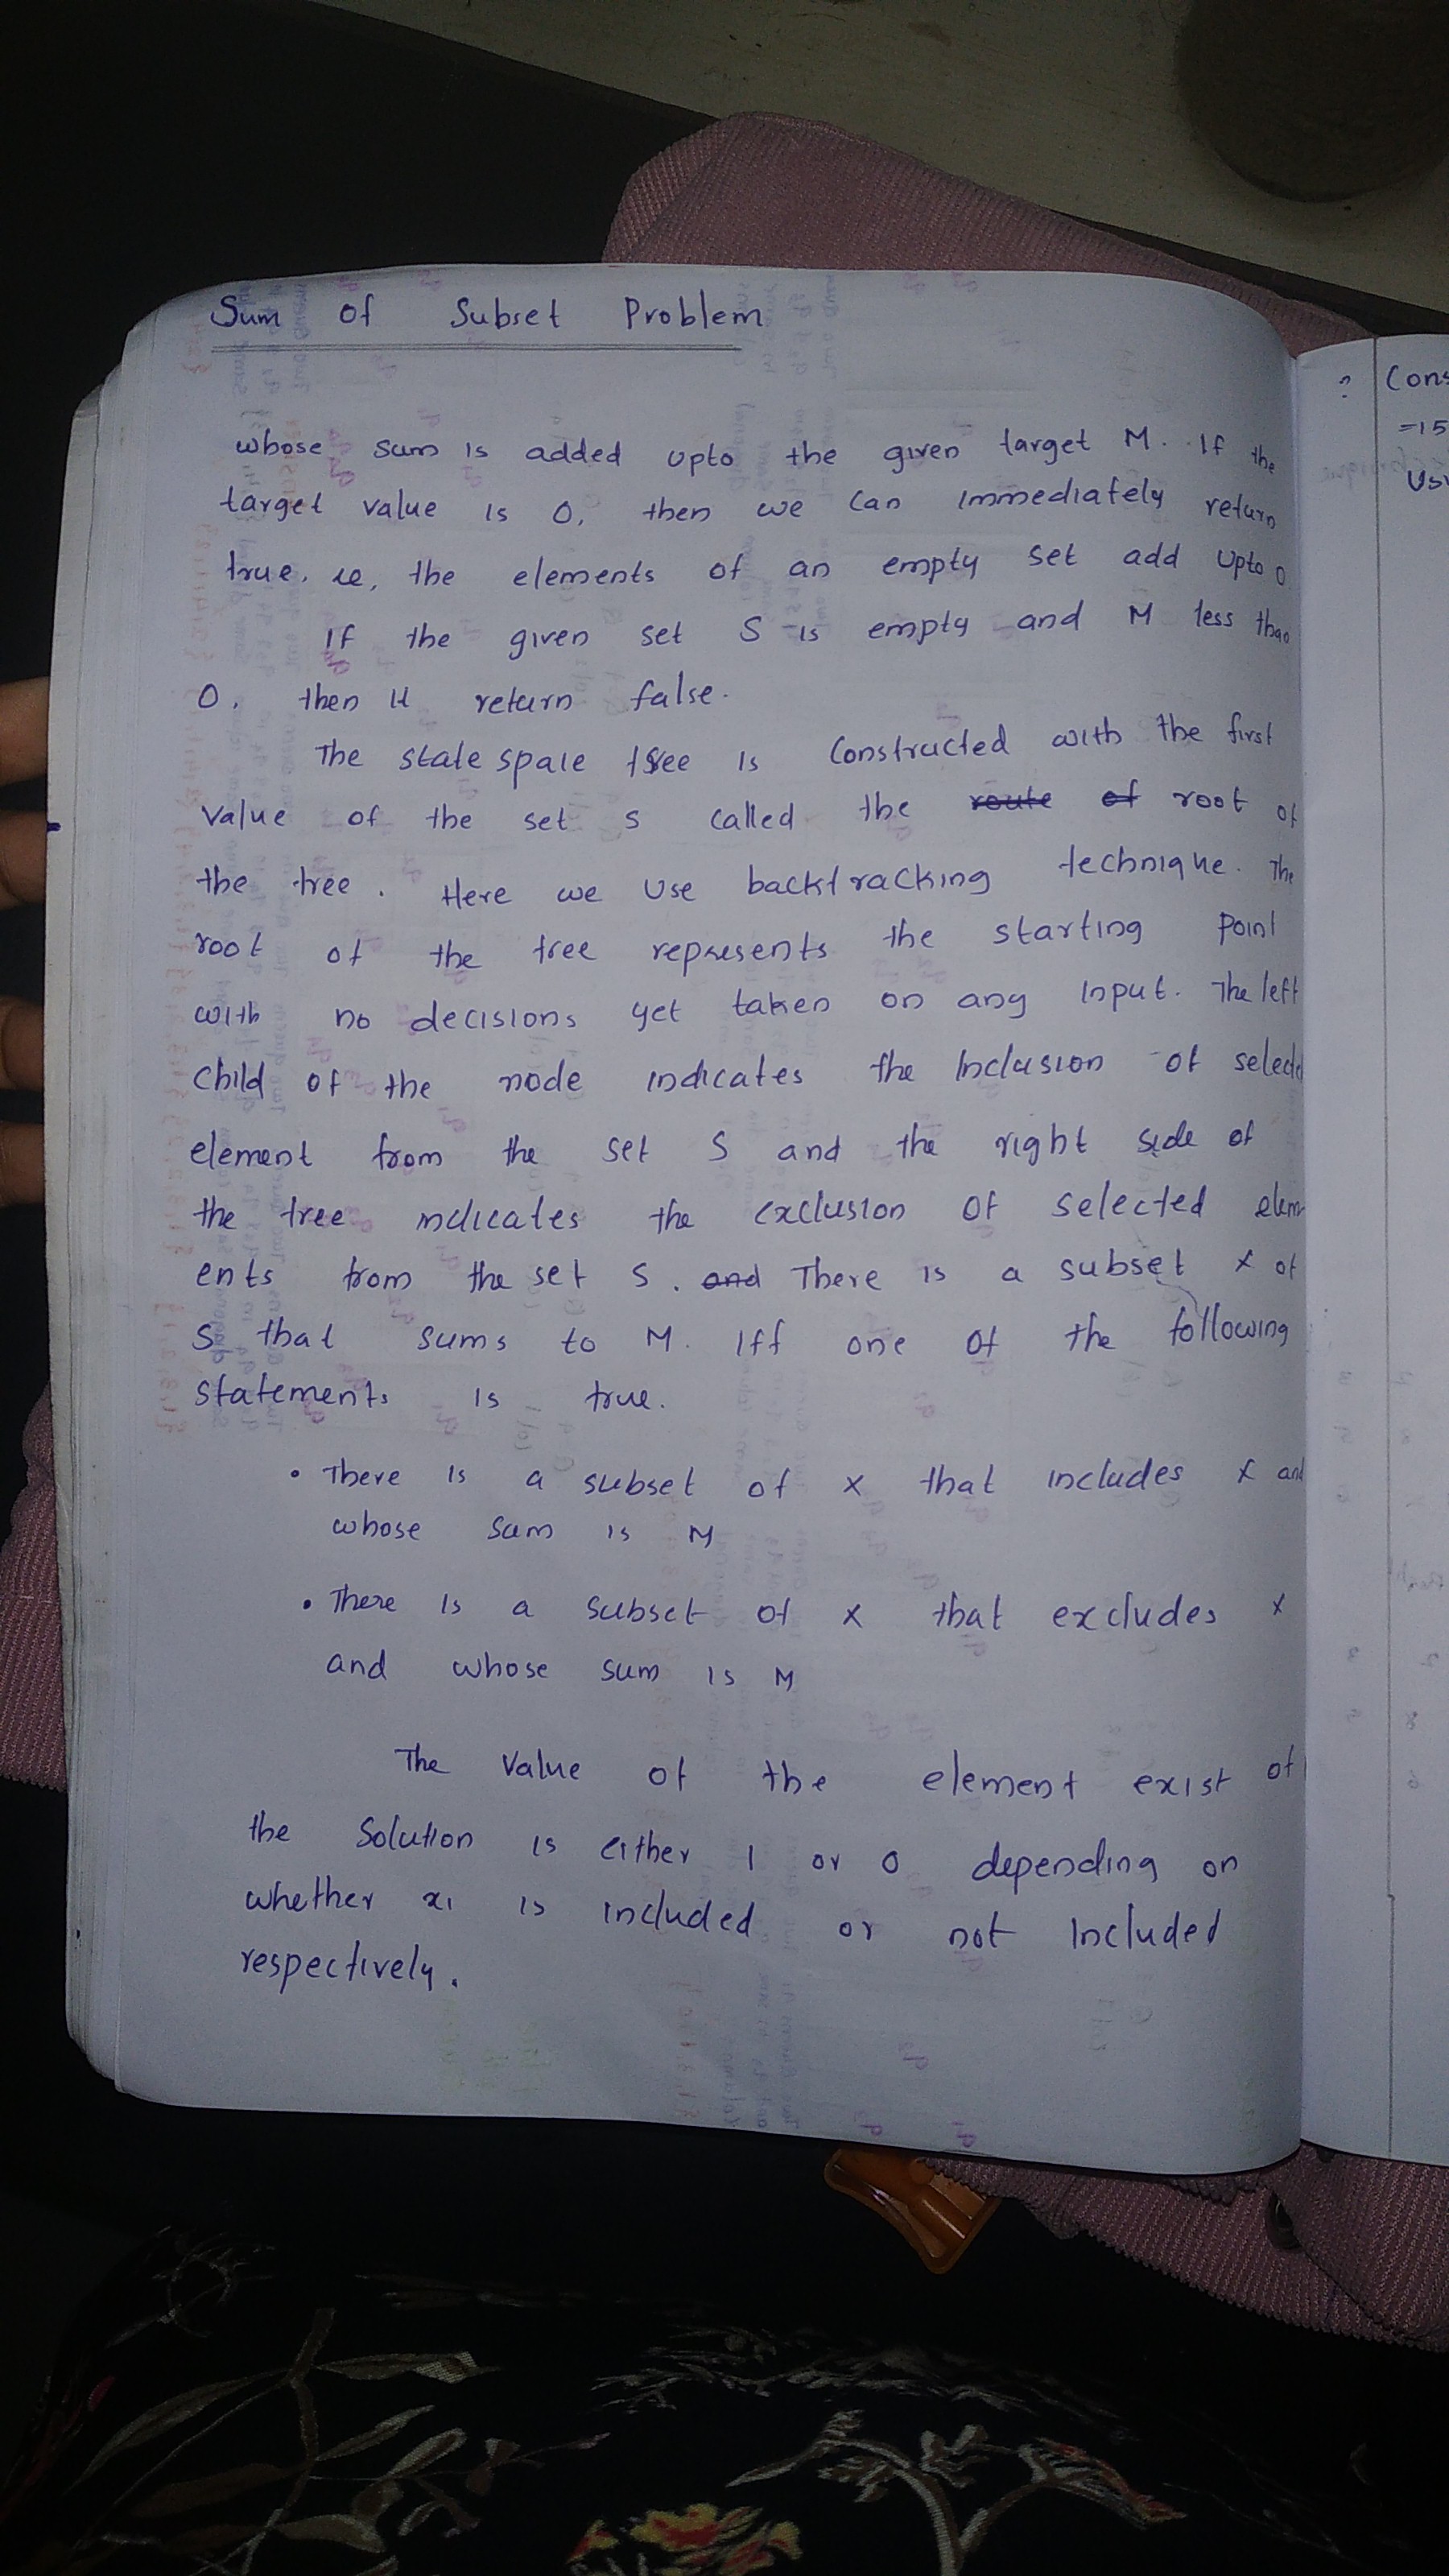 Sum of Subset Problem
whose sum is added upto the given target M. If the
target value is 0, then we can immediately return
true. ie, the elements of an empty set add upto 0
If the given set S is empty and M less than
0, then it return false.
The state space tree is constructed with the first
value of the set s called the route of root of
the tree. Here we use backtracking technique. The
root of the tree represents the starting point
with no decisions yet taken on any input. The left
child of the node indicates the inclusion of selected
element from the set S and the right side of
the tree indicates the exclusion of selected elem
ents from the set S. and There is a subset x of
S that sums to M. Iff one of the following
statements is true.
• There is a subset of x that includes x and
whose sum is M
• There is a subset of x that excludes x
and whose sum is M
The value of the element exist of
the solution is either 1 or 0 depending on
whether x1 is included or not included
respectively.
? Cons
=15
Usi